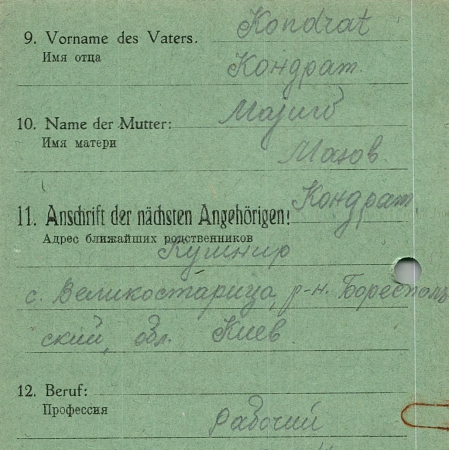 Kondrat
9. Vorname des Vaters.
Имя отца
Кондрат
10. Name der Mutter:
Имя матери
Маюв
Кондрат
11. Anschrift der nächsten Angehörigen:
Адрес ближайших родственников
Кушнир
с. Великостарица, р-н. Бореспол
ский, обл. Киев
12. Beruf:
Профессия
рабочий